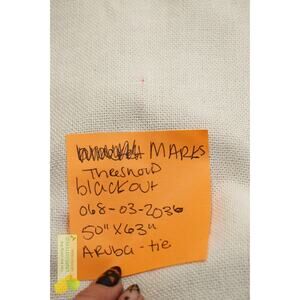 MARKS
Threshold
blackout
068-03-2036
50" X 63"
Aruba - tie